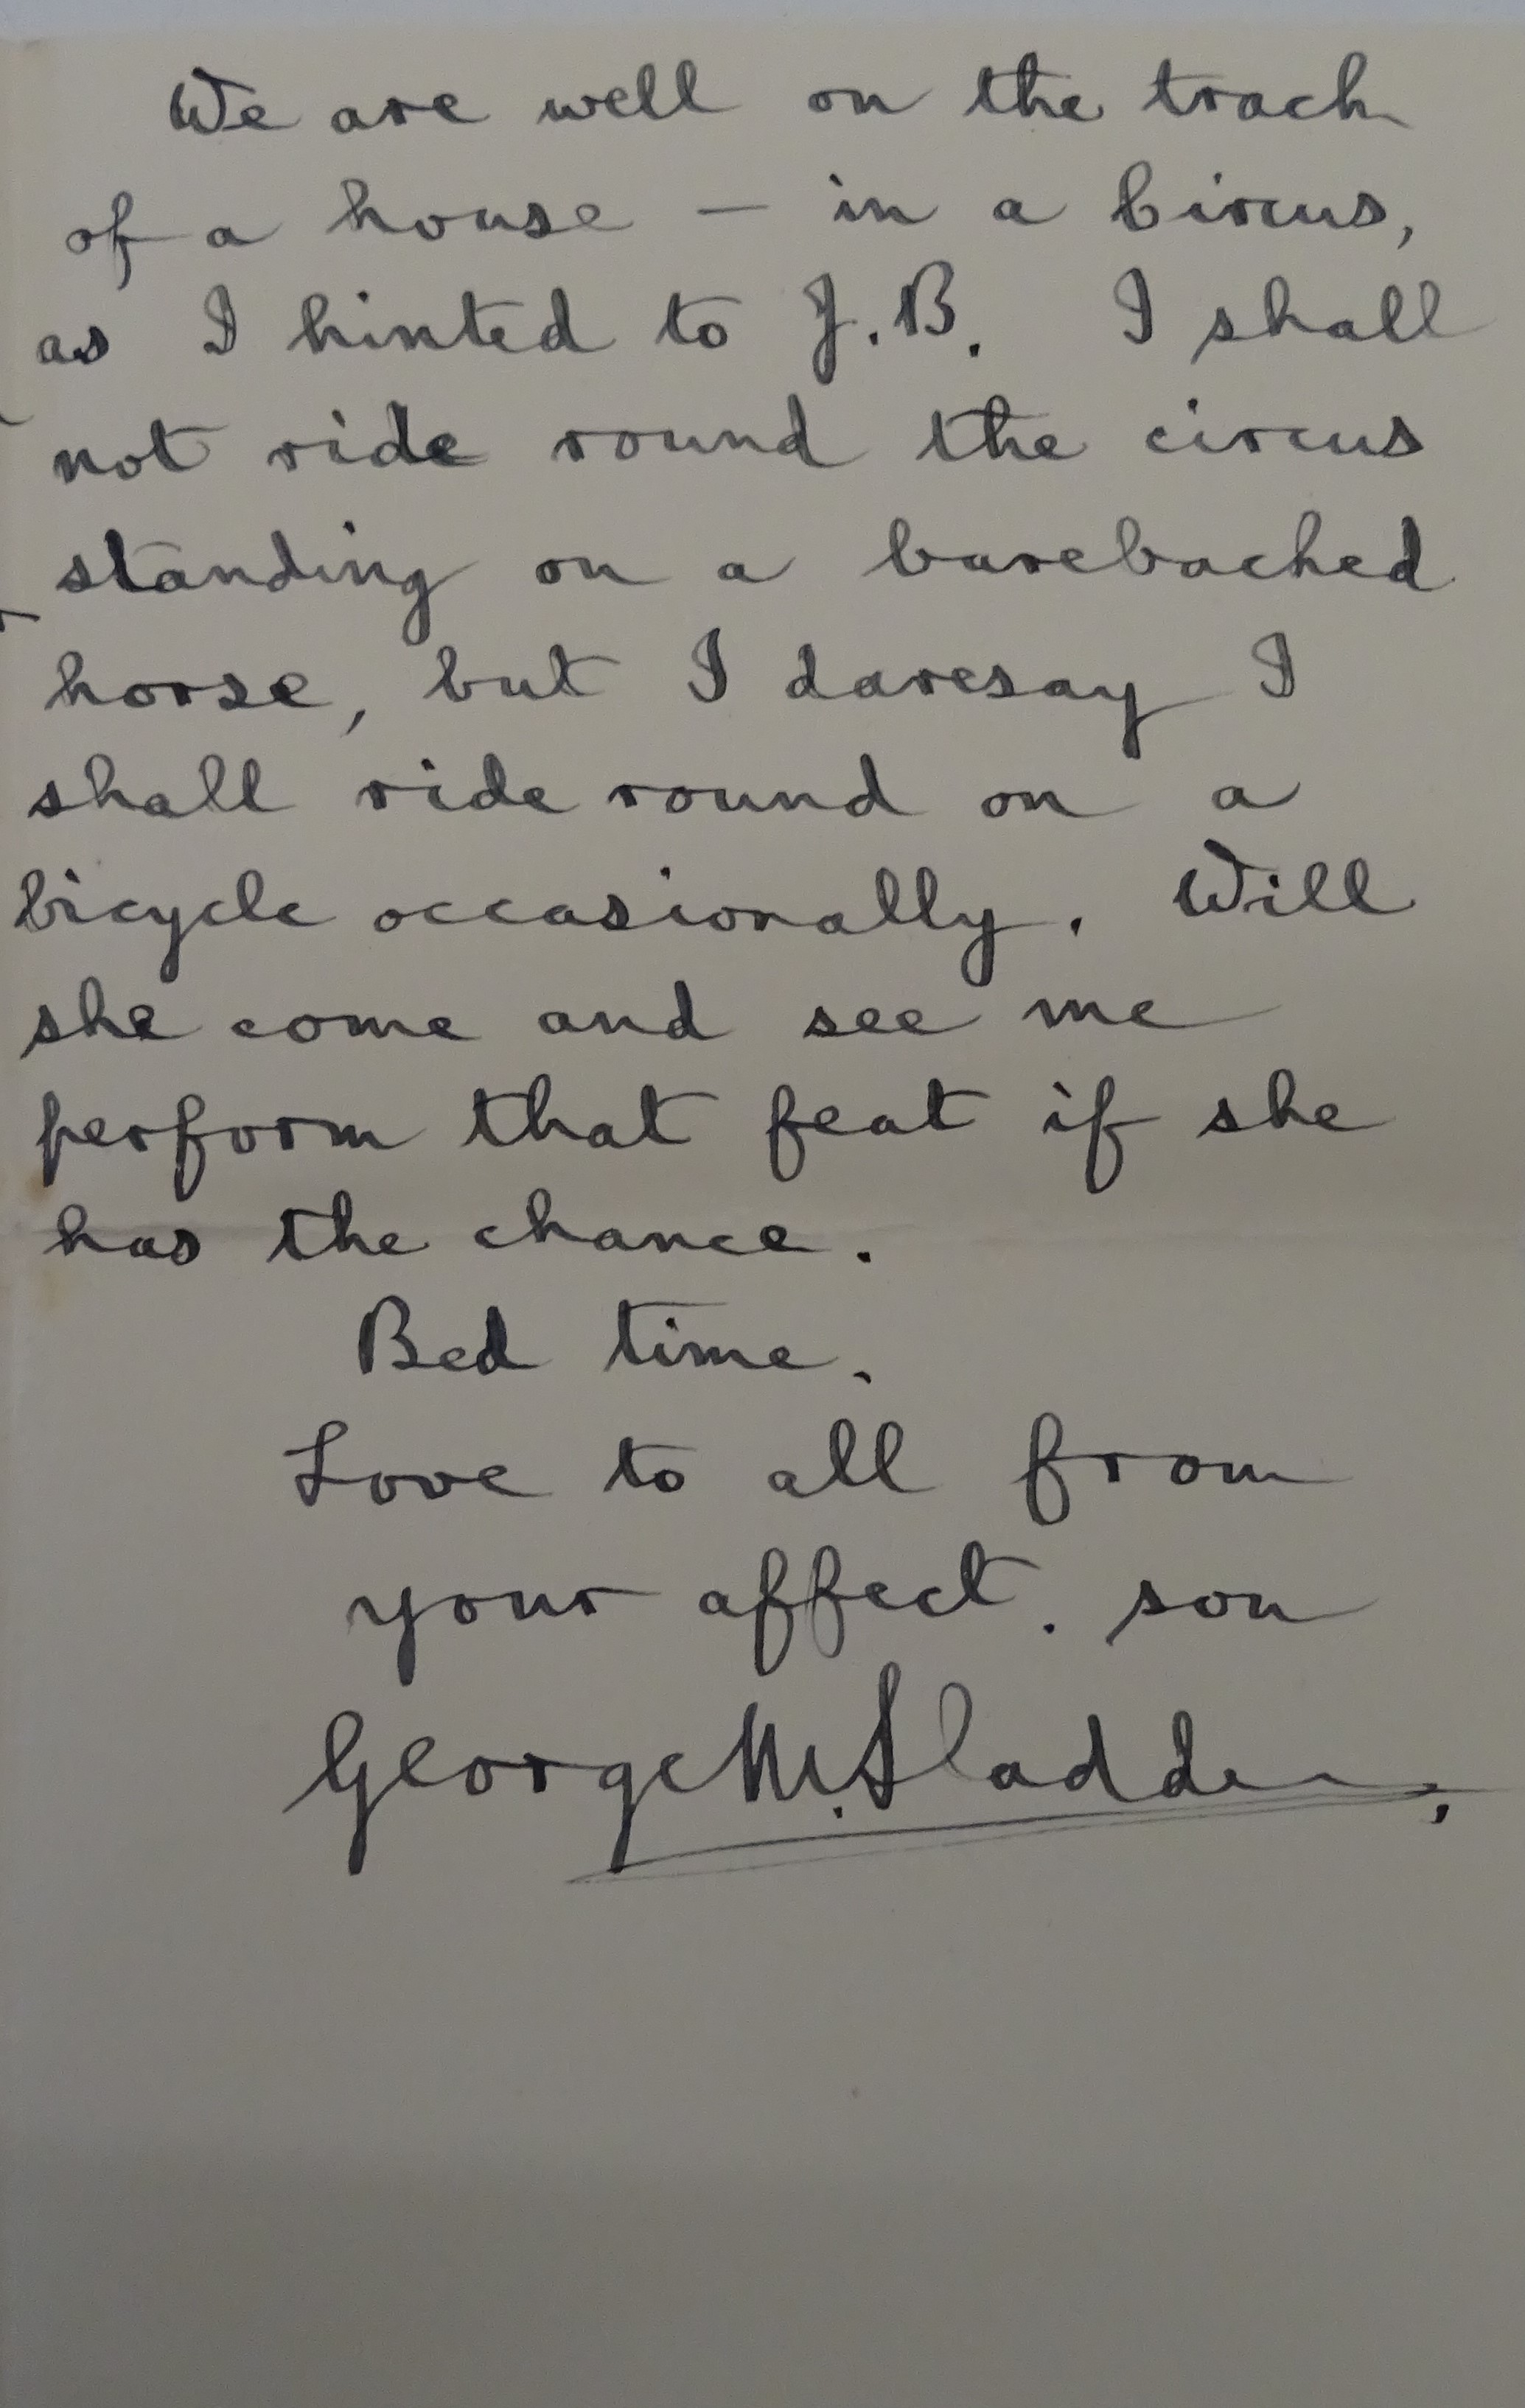 We are well on the track
of a house — in a Circus,
as I hinted to J.B. I shall
not ride round the circus
standing on a barebacked
horse, but I daresay I
shall ride round on a
bicycle occasionally. Will
she come and see me
perform that feat if she
has the chance.
Bed time.
Love to all from
your affect. son
George M. Sladden,